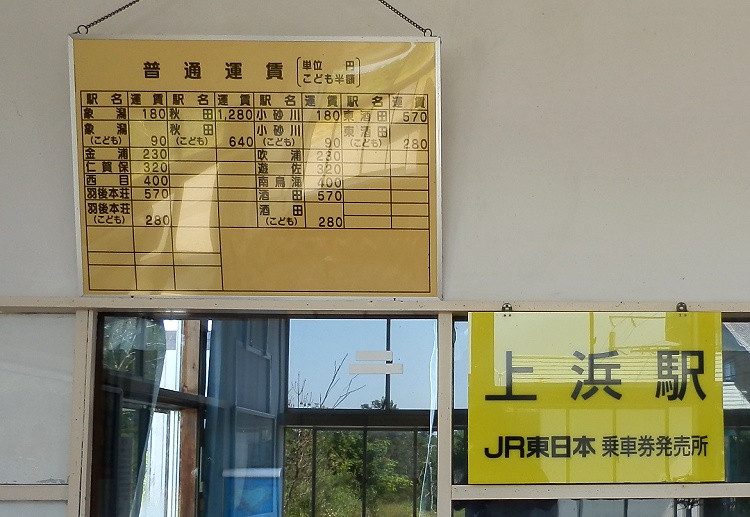 普通運賃 単位 円 こども半額
駅名 運賃 駅名 運賃 駅名 運賃 駅名 運賃
象潟 180 秋田 1,280 小砂川 180 東酒田 570
象潟(こども) 90 秋田(こども) 640 小砂川(こども) 90 東酒田(こども) 280
金浦 230 吹浦 230
仁賀保 320 遊佐 320
西目 400 南鳥海 400
羽後本荘 570 酒田 570
羽後本荘(こども) 280 酒田(こども) 280
上浜駅
JR東日本 乗車券発売所